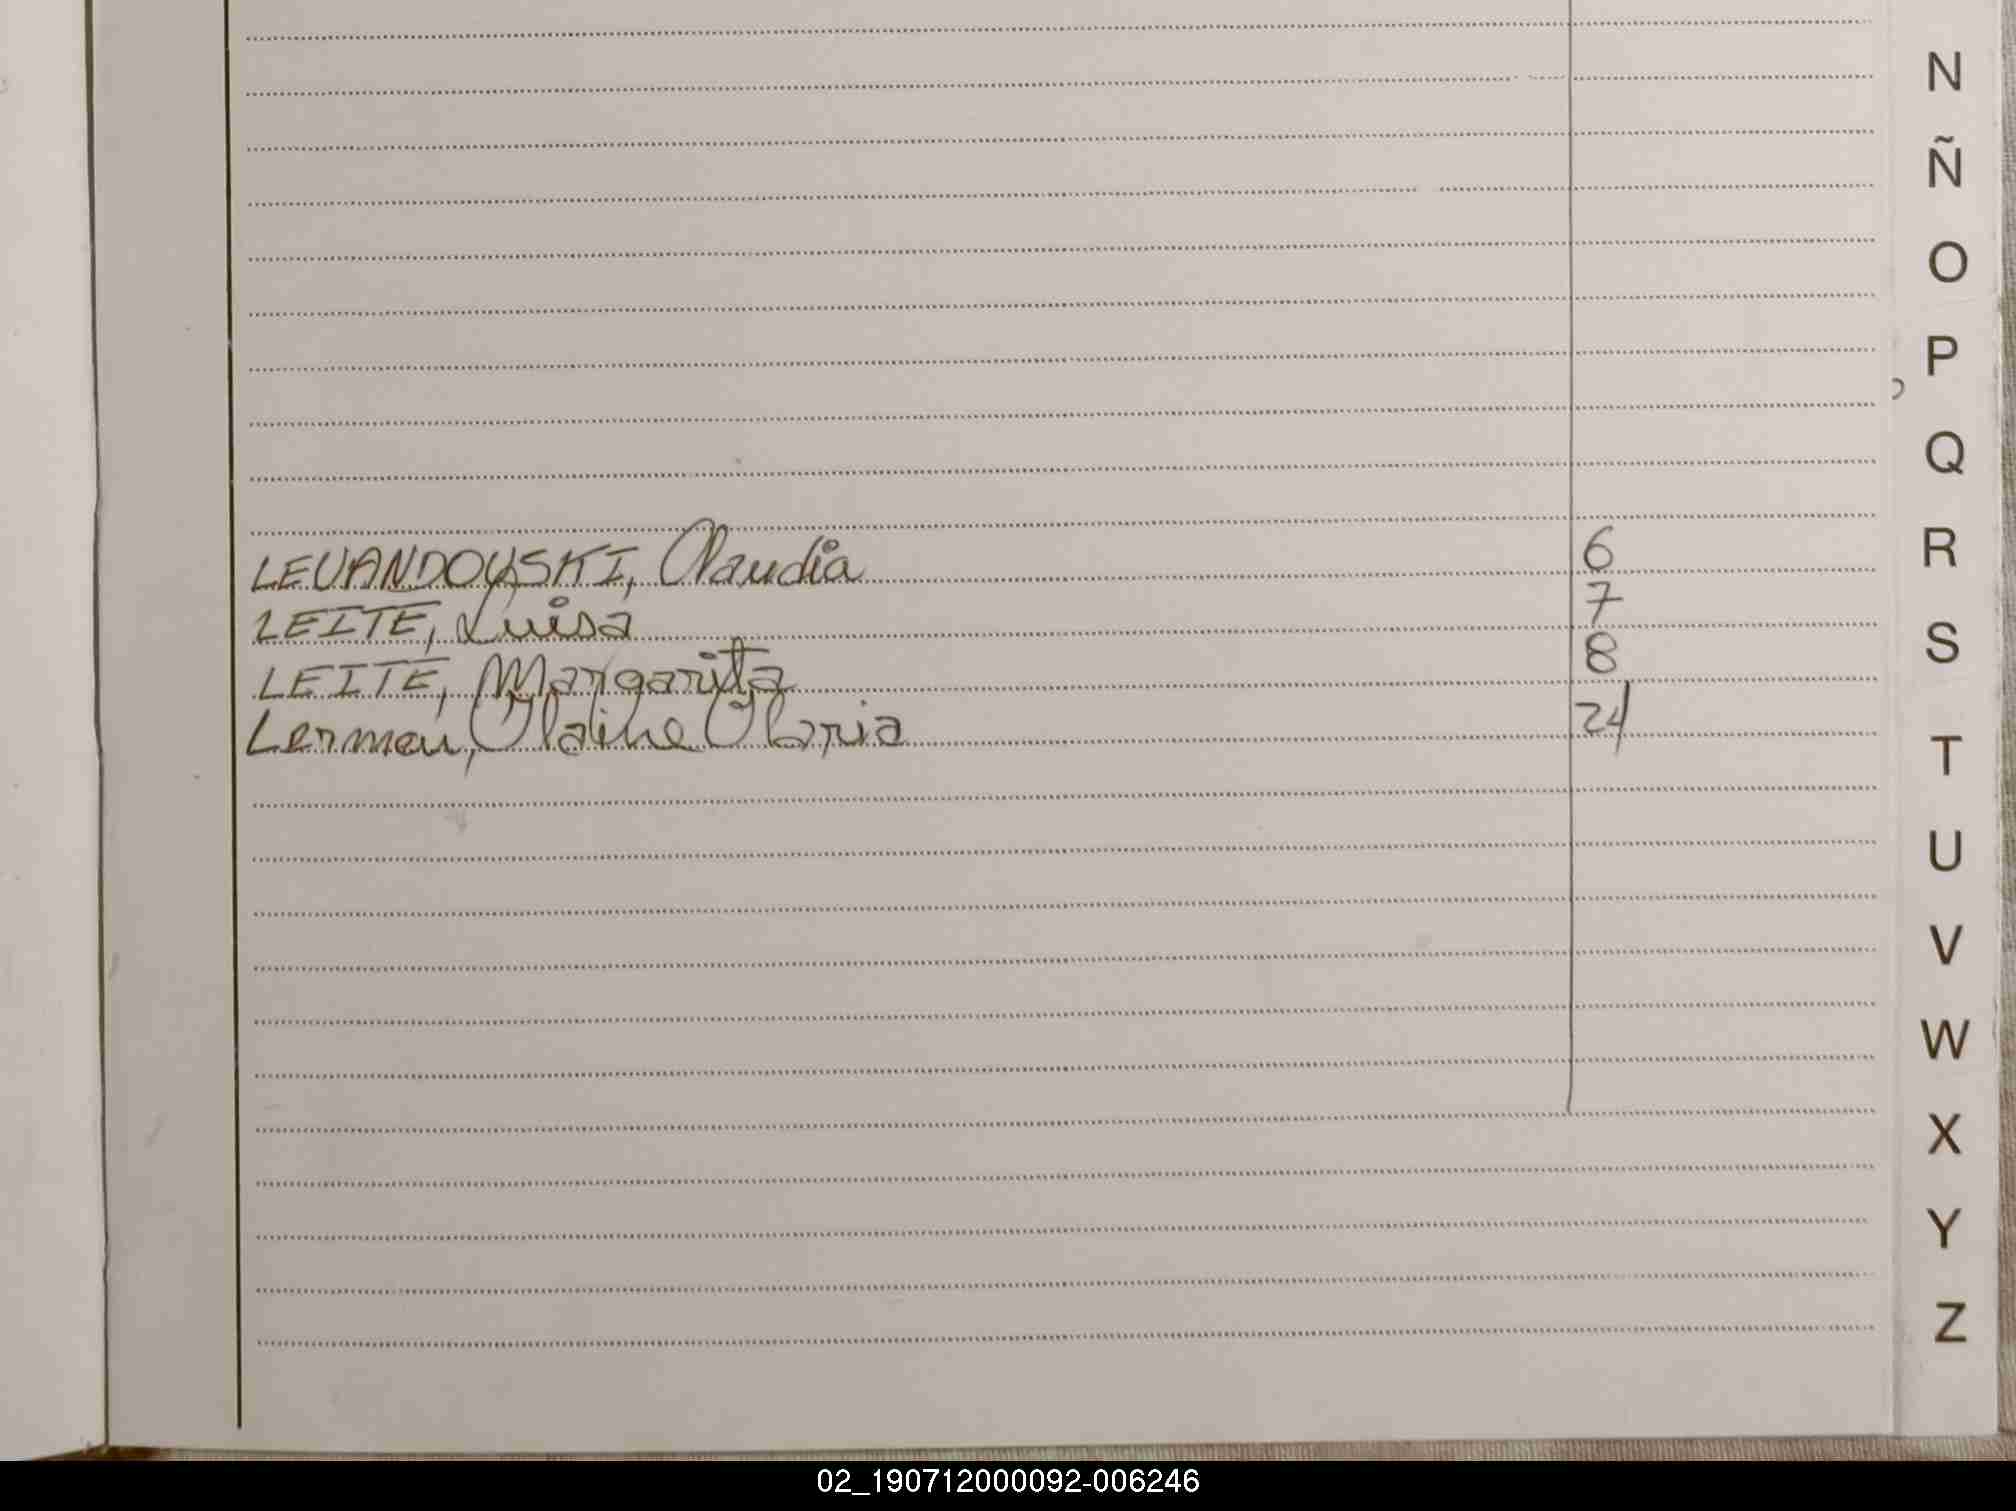 LEVANDOYSKI, Claudia 6
LEITE, Luisa 7
LEITE, Margarita 8
Lermen, Maria 24
N
Ñ
O
P
Q
R
S
T
U
V
W
X
Y
Z
02_190712000092-006246